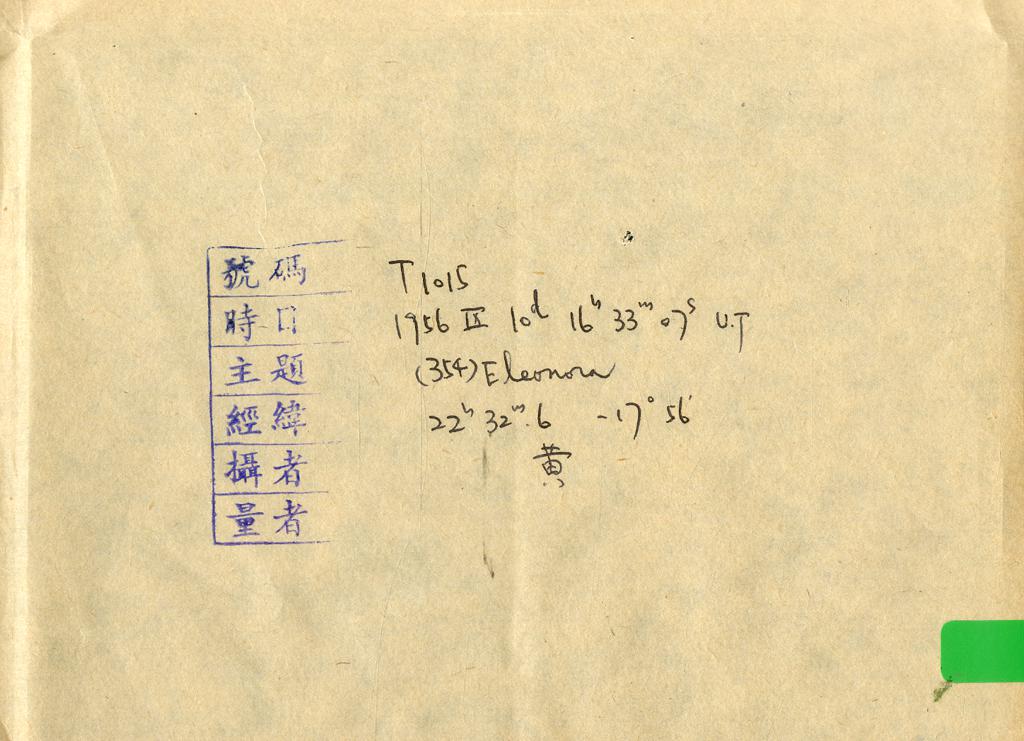 號碼 T1015
時日 1956 IX 10ᵈ 16ʰ 33ᵐ 07ˢ U.T
主題 (354) Eleonora
經緯 22ʰ 32ᵐ.6 -17° 56′
攝者 黄
量者